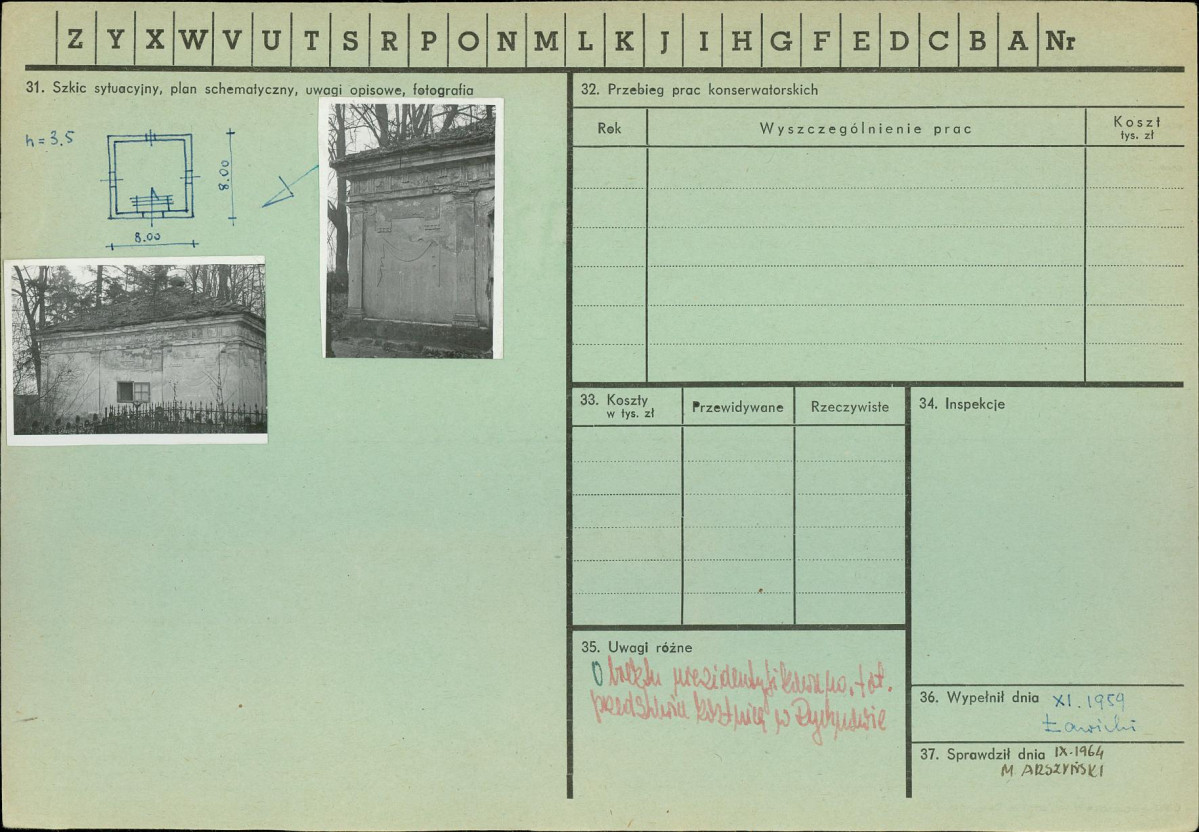 Z Y X W V U T S R P O N M L K J I H G F E D C B A Nr
31. Szkic sytuacyjny, plan schematyczny, uwagi opisowe, fotografia
h = 3.5
8.00
8.00
32. Przebieg prac konserwatorskich
Rok
Wyszczególnienie prac
Koszt
tys. zł
33. Koszty
w tys. zł
Przewidywane
Rzeczywiste
34. Inspekcje
35. Uwagi różne
fot.
w
36. Wypełnił dnia XI. 1959
Ławicki
37. Sprawdził dnia IX-1964
M ARSZYŃSKI